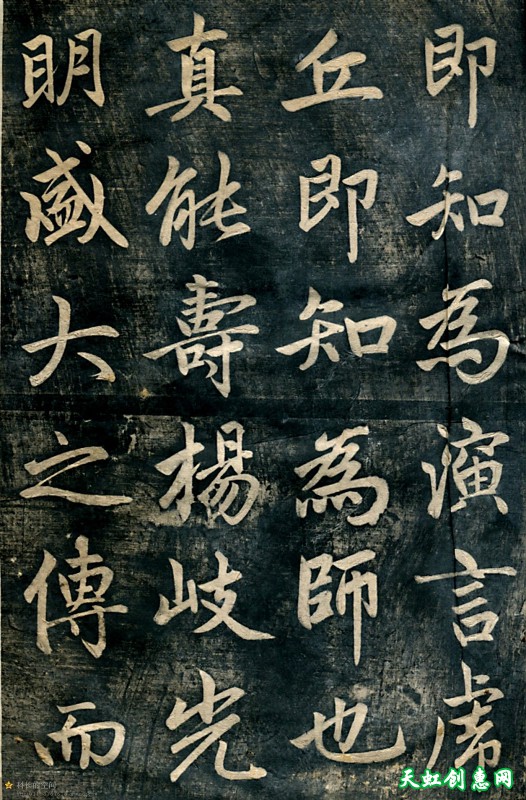 即知為演言虎
丘即知為師也
真能壽楊岐光
明盛大之傳而
天虹创意网